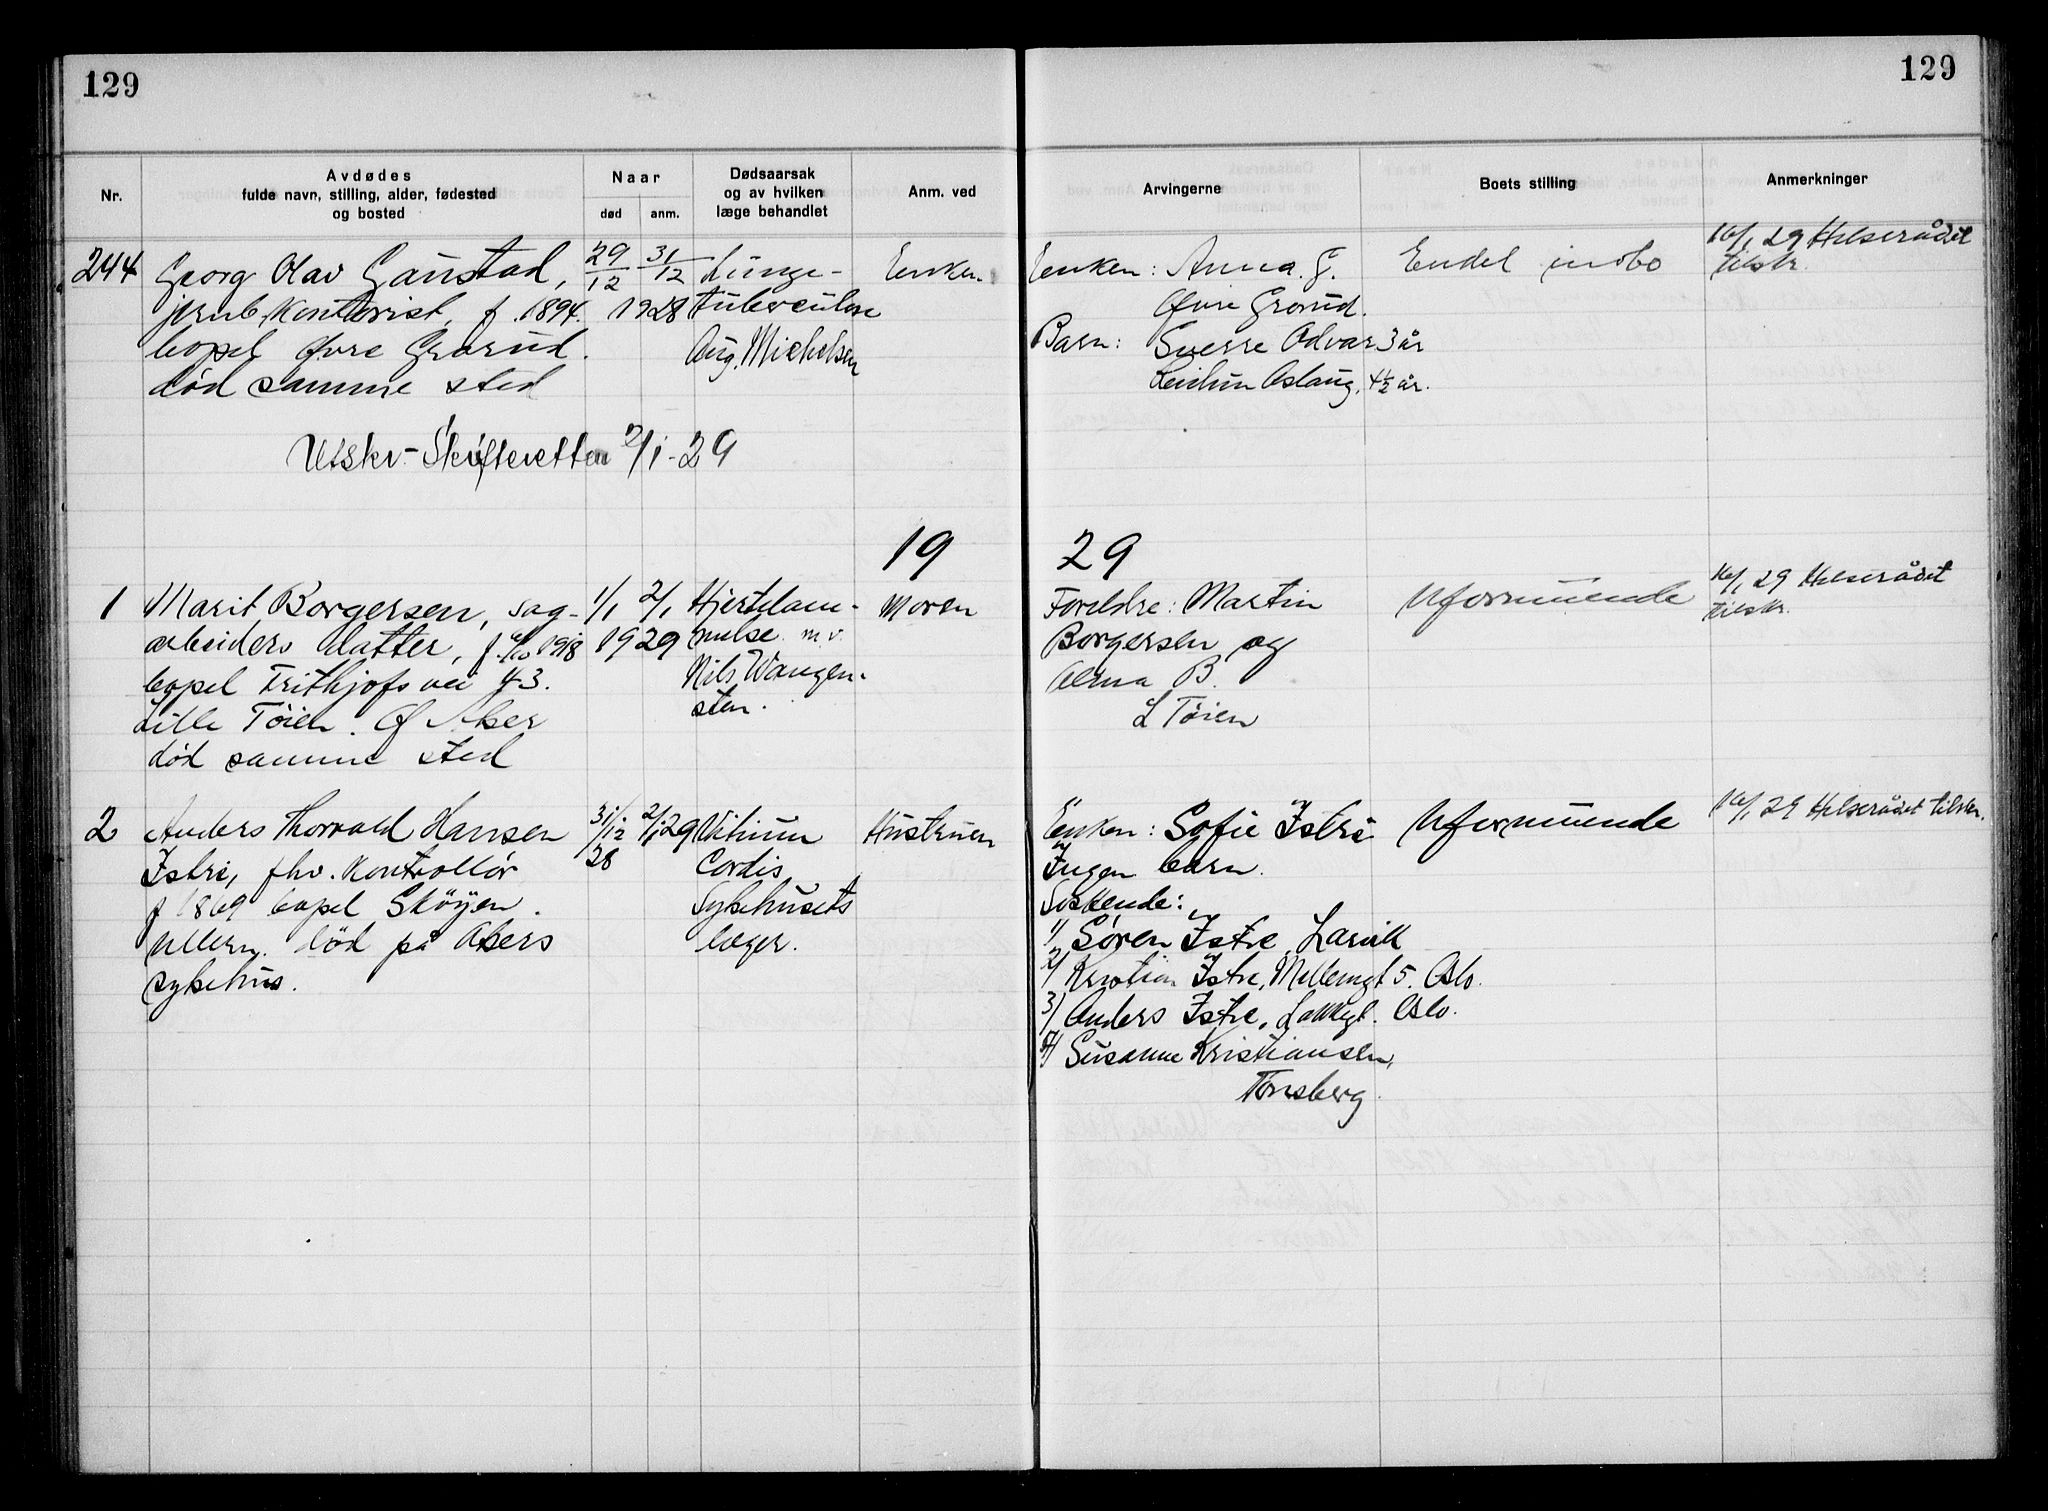 129
129
Nr.
Avdødes
fulde navn, stilling, alder, fødested
og bosted
Naar
død
anm.
Dødsaarsak
og av hvilken
læge behandlet
Anm. ved
Arvingerne
Boets stilling
Anmerkninger
244
Georg Olav Gaustad,
jernb. kontorist, f. 1894.
bopel Øvre Grorud.
død samme sted
29/12 31/12
1928
Lunge-
tuberculose
Aug. Michelsen
Enken.
Enken: Anna G.
Øvre Grorud.
Barn: Sverre Odvar 3 år
Aslaug, 4½ år.
Endel indbo
16/1 29 Helserådet
tilskr.
Utskr. Skifteretten 2/1-29
1929
1
Marit Borgersen, sag-
arbeiders datter, f. 1918
bopel Frithjofs vei 43.
Lille Tøien. Ø Aker
død samme sted
1/1 2/1
1929
Hjertelam-
melse m.v.
Nils Wangen-
sten.
Moren
Foreldre: Martin
Borgersen og
Alma B.
L Tøien
Uformuende
16/1 29 Helserådet
tilskr.
2
Anders Thorvald Hansen
Istre, fhv. kontrollør
f 1869 bopel Skøyen.
Ullern. død på Akers
sykehus.
31/12 28
2/1 29
Vitium
Cordis
Sykehusets
læger.
Hustruen
Enken: Sofie Istre
Ingen barn.
Søskende:
1) Søren Istre, Larvik
2) Kristian Istre, Møllergt 5. Oslo.
3) Anders Istre, Lakkegt. Oslo.
4) Susanne Kristiansen,
Tønsberg.
Uformuende
16/1 29 Helserådet tilskr.